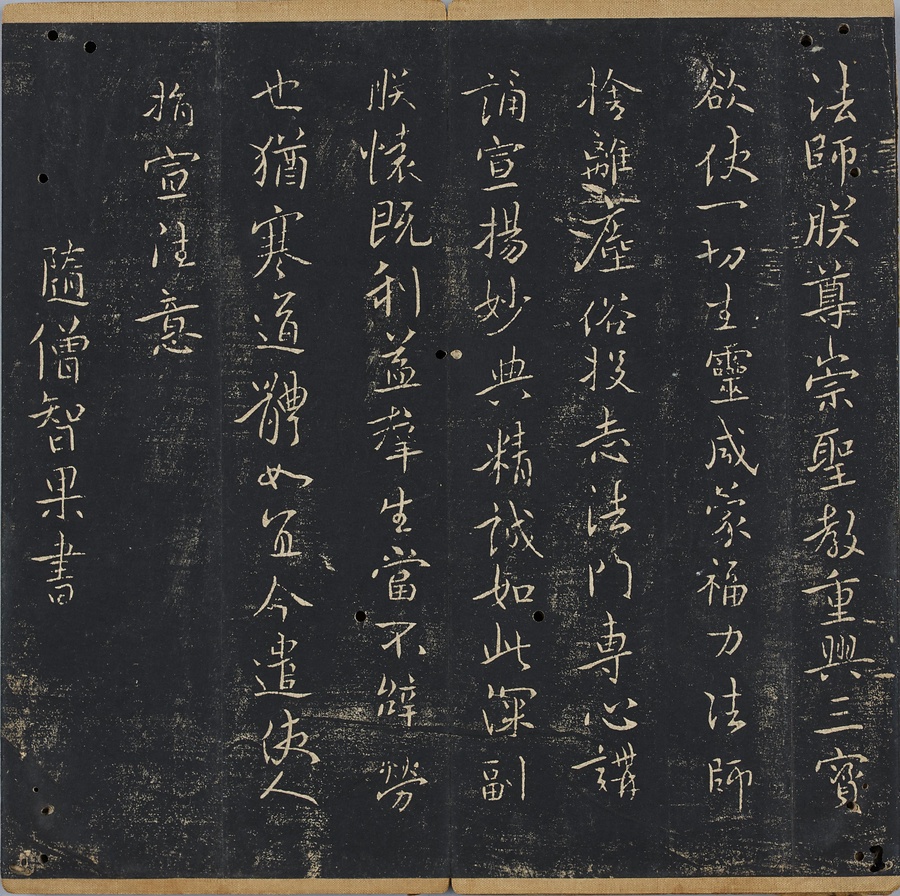 法師朕尊崇聖教重興三寶
欲使一切生靈咸蒙福力法師
捨離塵俗投志法門專心講
誦宣揚妙典精誠如此深副
朕懷既利益羣生當不辭勞
也猶寒道體如宜今遣使人
指宣往意
隨僧智果書